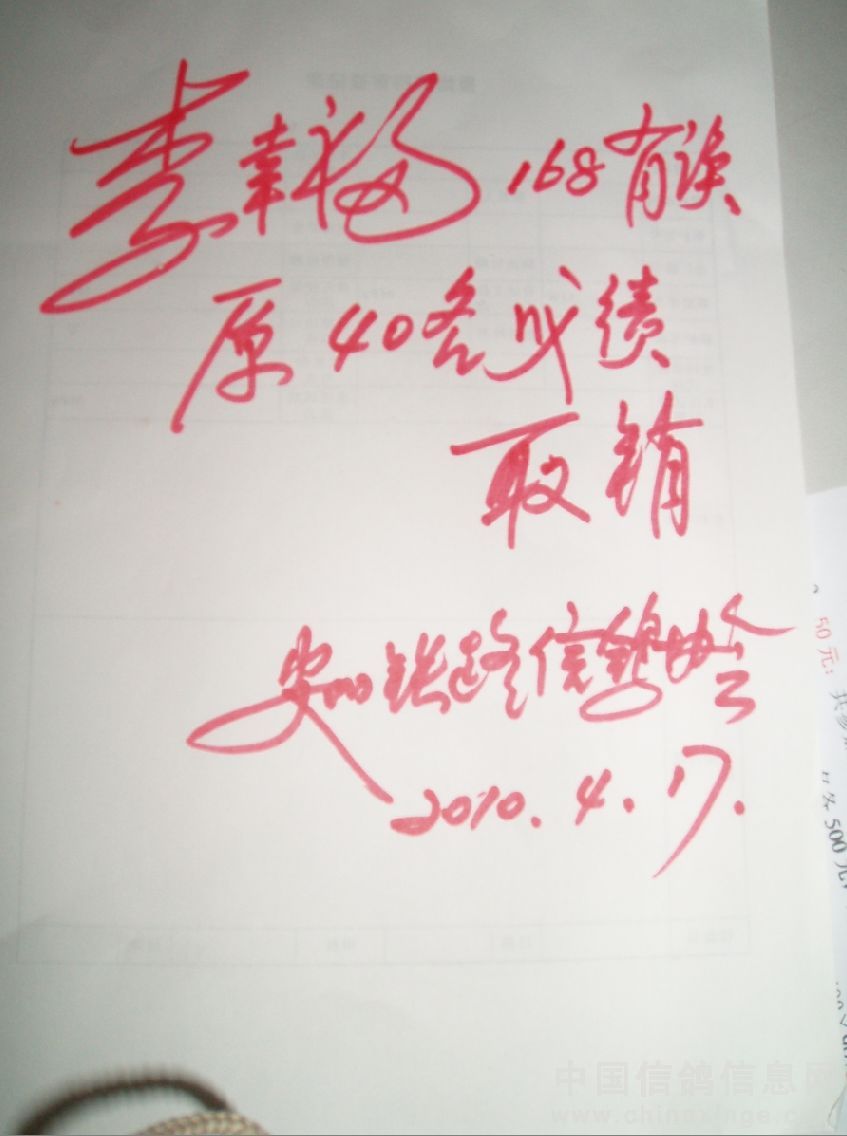 李幸福 168有误
原40名成绩
取销
安阳铁路信鸽协会
2010.4.17.
50元;
500元,
中国信鸽信息网
www.chinaxinge.com